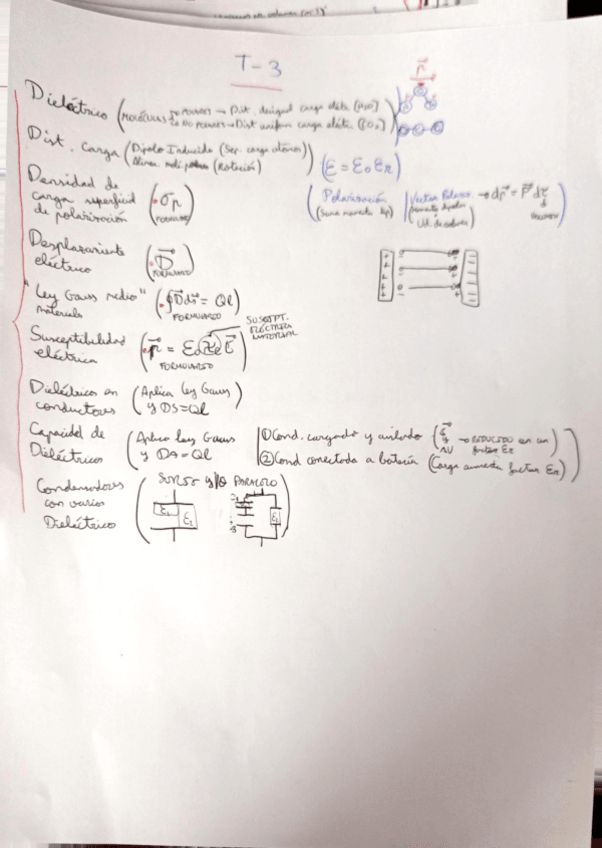 T-3
Dieléctrico (Moléculas POLARES → Dist. desigual carga eléct. [H2O]
NO POLARES → Dist uniform carga eléct. [CO2])
Dist. Carga (Dipolo Inducido (Sep. carga átomos)
(Rotación)) (ε = ε0 εr)
Densidad de
carga superficial
de polarización (σp
FORMULARIO)
(Polarización | Vector Polariz. → dp⃗ = P⃗ dτ
VOLUMEN)
Desplazamiento
eléctrico (D⃗
FORMULARIO)
"Ley Gauss medio"
materiales (∮D⃗ds⃗ = Ql)
FORMULARIO
Susceptibilidad
eléctrica (P⃗ = ε0 χe E⃗)
FORMULARIO
SUSCEPT.
ELÉCTRICA
MATERIAL
Dieléctricos en
conductores (Aplica ley Gauss
y DS=Ql)
Capacidad de
Dieléctricos (Aplico ley Gauss
y DA=Ql
| ① Cond. cargado y aislado (E⃗ y ΔV → REDUCIDO en un factor εr)
② Cond conectado a batería (Carga aumenta factor εr))
Condensadores
con varios
Dieléctrico
(SERIE Y/O PARALELO)
ε1
ε2
ε1